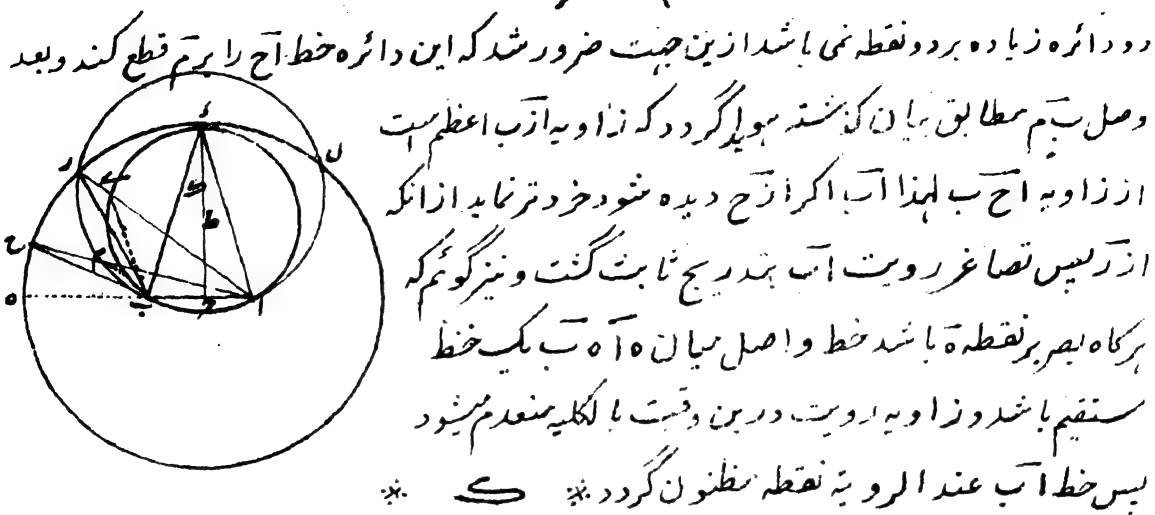 دو دائره زیاده بر دو نقطه نمی باشد ازین جهت ضرور شد که این دائره خط اح را بر م قطع کند و بعد
وصل ب م مطابق بیان گذشته هویدا گردد که زاویه ا ز ب اعظم است
از زاویه ا ح ب لهذا ا ب اگر از ح دیده شود خرد تر نماید از انکه
از ر پس تصاغر رویت ا ب بتدریج ثابت گشت و نیز گوئم که
هر کاه بصر بر نقطه ه باشد خط واصل میان ه ا ه ب یک خط
مستقیم باشد و زاویه رویت درین وقت بالکلیه منعدم میشود
پس خط ا ب عند الرویة نقطه مظنون گردد ※ ک ※
ء
ر
ل
ح
ط
ه
ب
ا